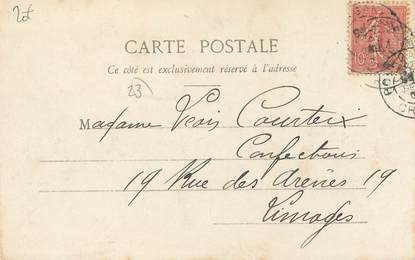 2f
CARTE POSTALE
Ce côté est exclusivement réservé à l'adresse
23
Madame Courteix
Confections
19 Rue des Arènes 19
Limoges